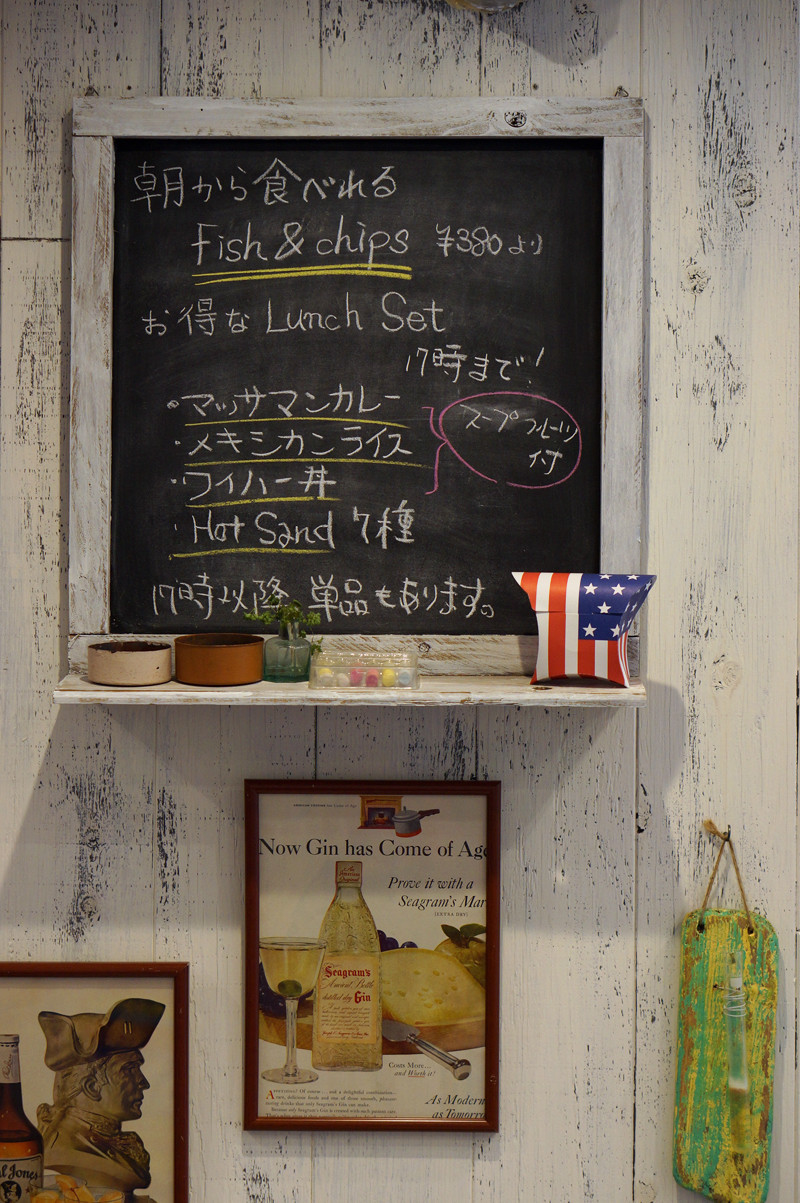 朝から食べれる
Fish & chips ¥380より
お得な Lunch Set
17時まで!
・マッサマンカレー
・メキシカンライス
・ワイハー丼
・Hot Sand 7種
スープ フルーツ
付
17時以降 単品もあります。
Now Gin has Come of Age
Prove it with a
Seagram's Mar
(EXTRA DRY)
Seagram's
Ancient Bottle
distilled dry Gin
Costs More...
and Worth it!
As Modern
as Tomorro
l Jones